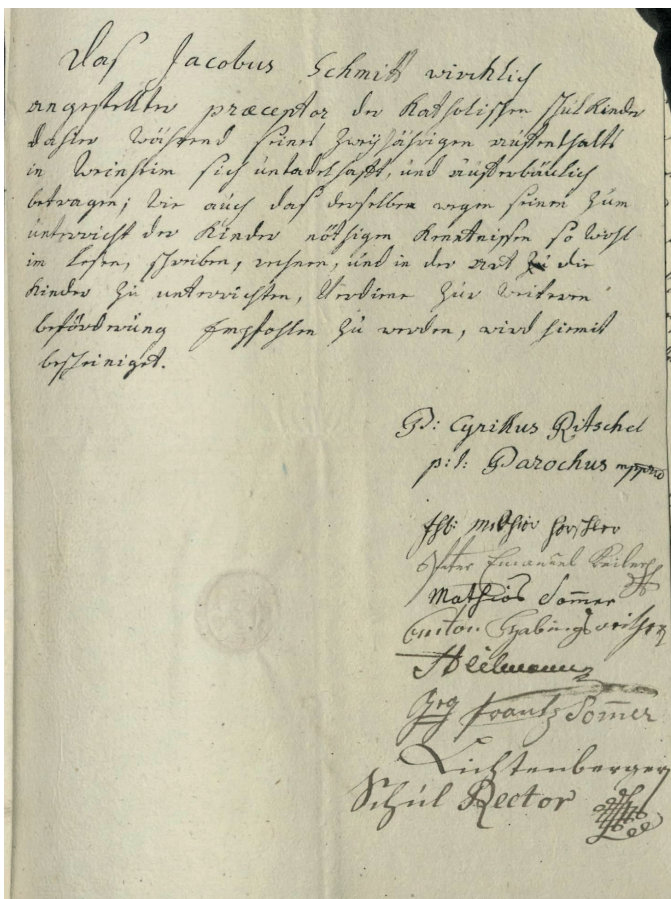 Das Jacobus Schmitt wirchlich
angestelter præceptor der Katholischen schulKinder
dahier während seines zweyjährigen auffenthalts
in Weinheim sich untadelhafft, und aufferbäulich
betragen; wie auch das derselbe wegen seinen zum
unterricht der Kinder nöthigen Kenntnissen so wohl
im lesen, schreiben, rechnen, und in der art die
Kinder zu unterrichten, Verdiene zur weiteren
beförderung Empfohlen zu werden, wird hiemit
bescheiniget.
P: Cyrillus Ritschel
p:t: Parochus mppria
Peter Emanuel
Mathias Sommer
Anton
Heilmann
Grg Frantz Sommer
Lichtenberger
Schul Rector